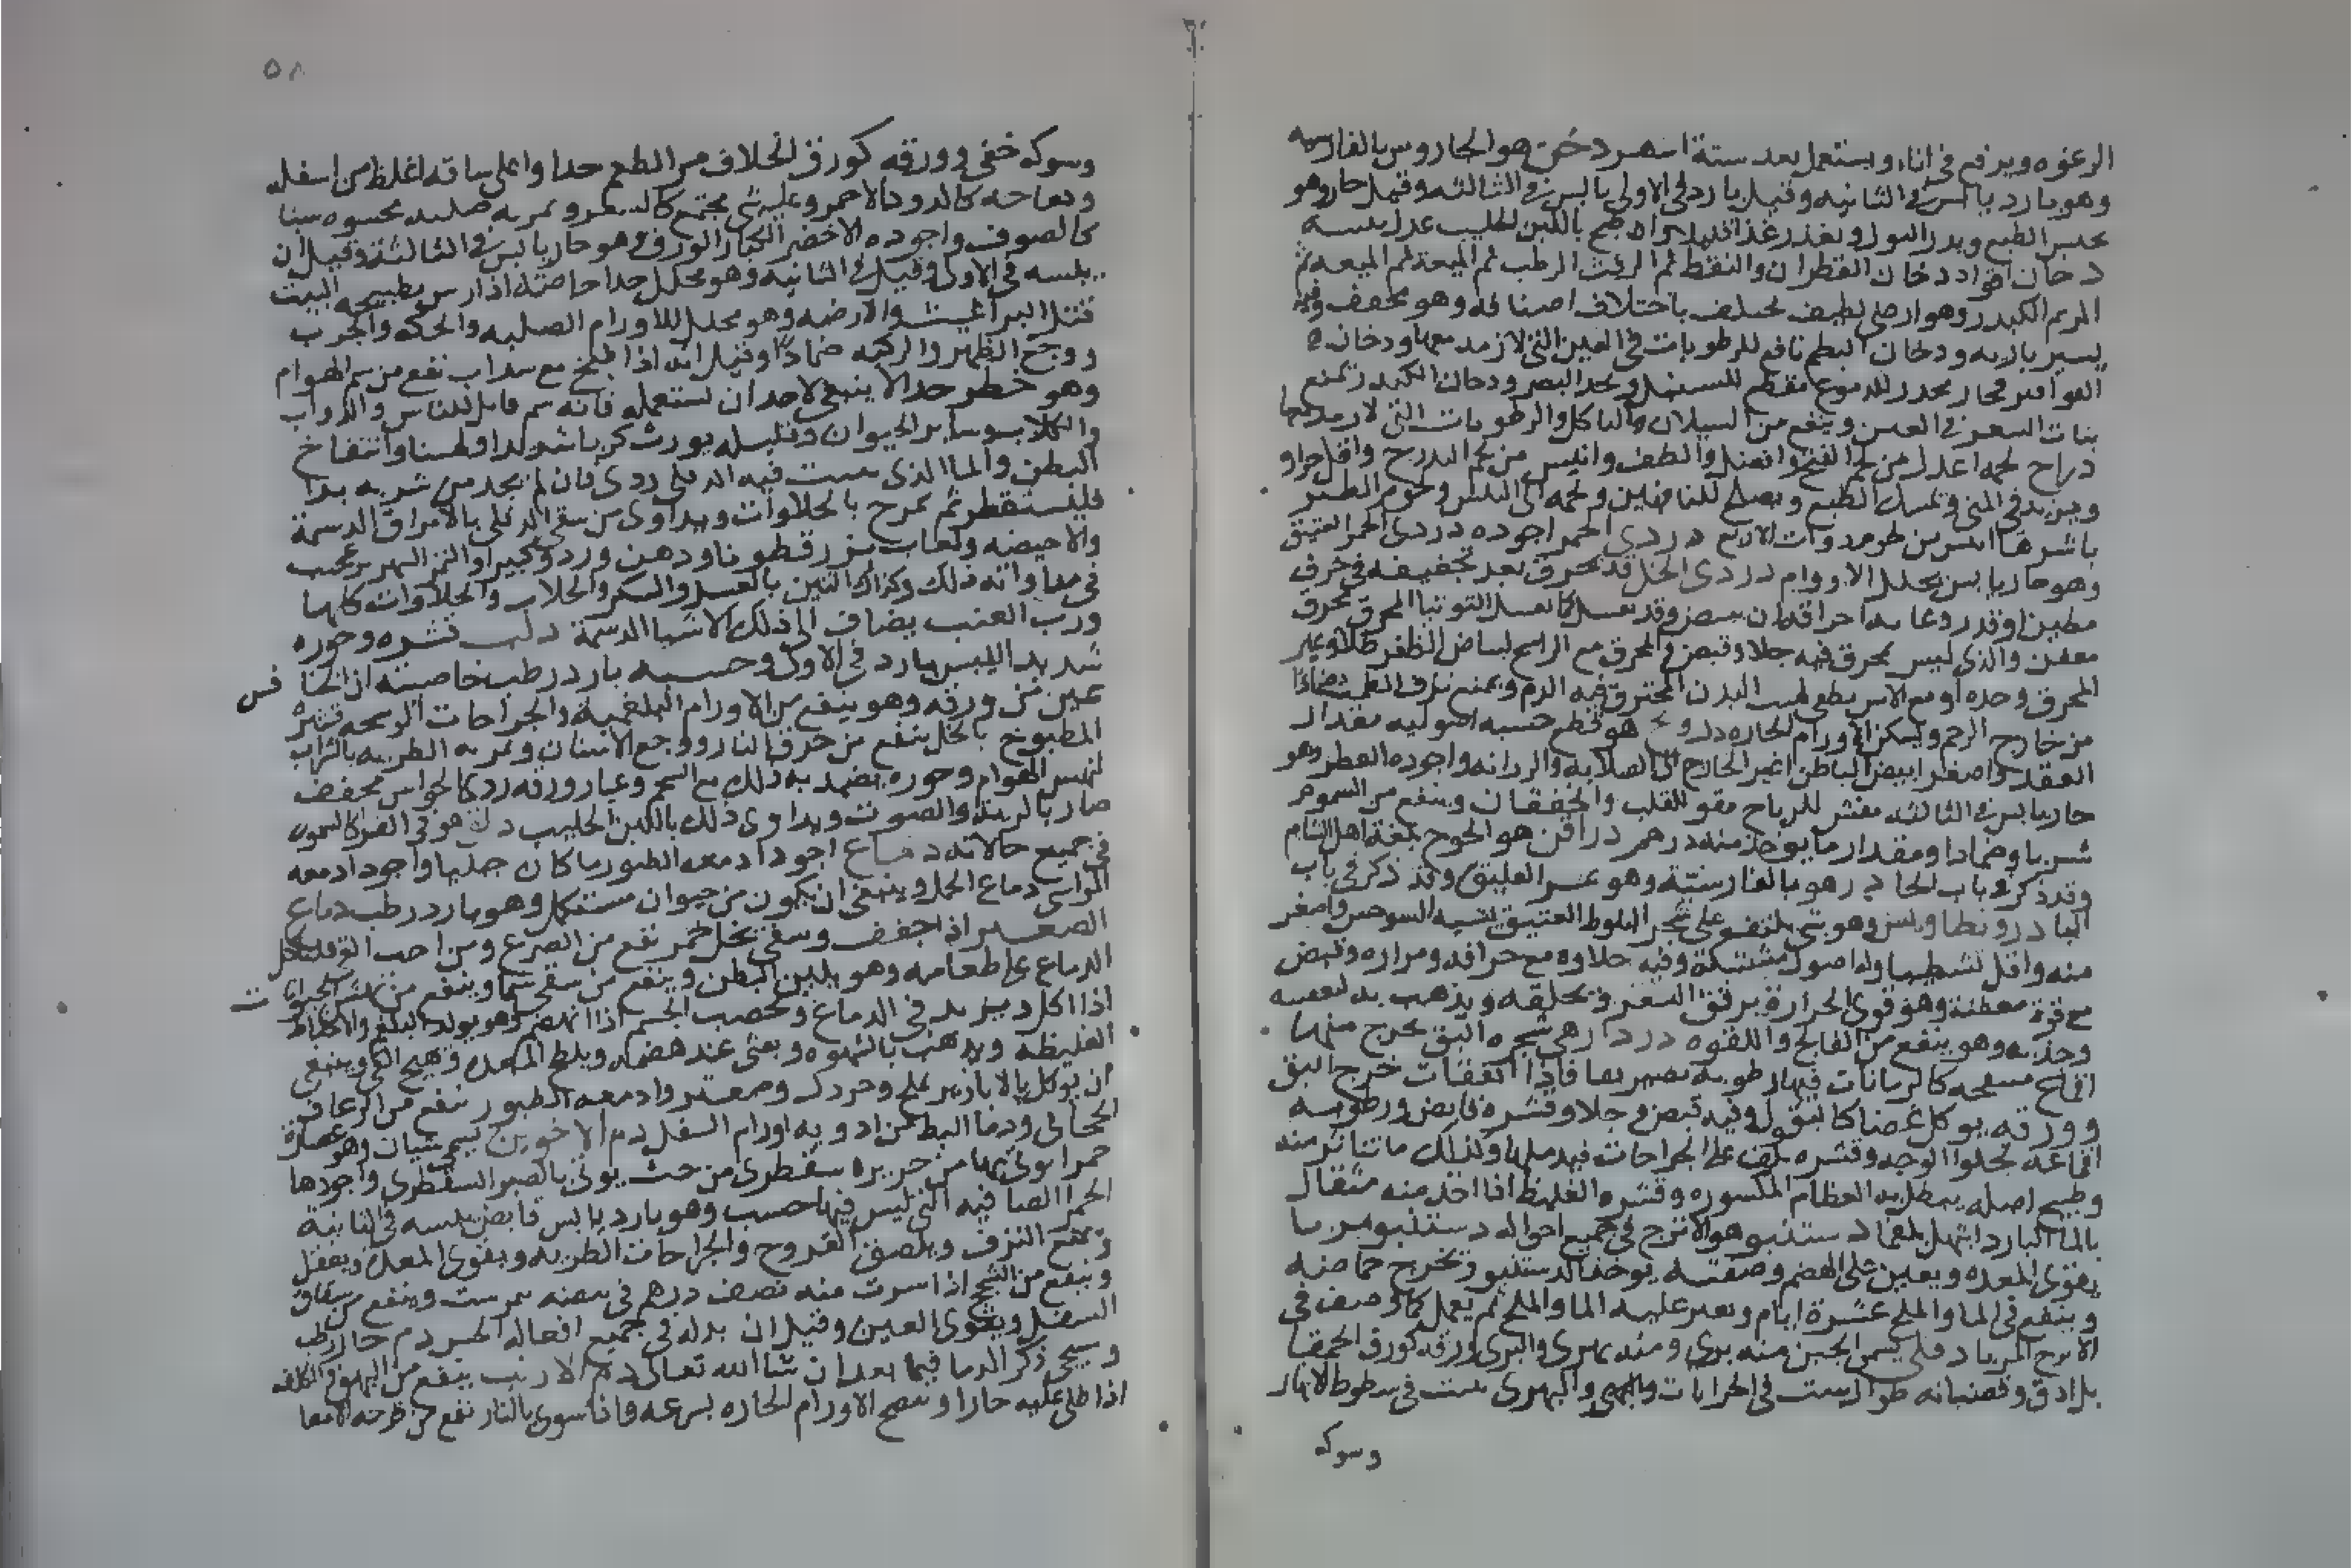 الرغوه ويرفع في اناء ويستعمل بعد ستة اشهر دخن هو الجاورس بالفارسيه
وهو بارد يابس في الثانيه وقيل بارد في الاولى يابس في الثالثه وقيل حار وهو
يحبس الطبع ويدر البول ويغذر غذا قليلا طبخ باللبن الحليب عدل يبسه
دخان اقواه دخان القطران والنفط ثم الزفت الرطب ثم الميعة ثم
المر ثم الكندر وهو ارضي لطيف يختلف باختلاف اصنافه وهو مجفف وفيه
يسير ناريه ودخان البطم نافع للرطوبات في العين التي لا رمد معها ودخان
القوارير للدموع مقطع للسبل ويحد البصر ودخان الكندر يمنع
بنات الشعر في العين وينفع من السيلان والتاكل والرطوبات التي لا رمد معها
دراج لحمه اعدل من لحم الفتخ وافضل والطف وايبس من لحم التدرج واقل حراره
ويزيد في المني ويمسك الطبع ويصلح للناقهين ولحمه الى اليبس ولحوم الطير
باسرها ايبس من لحوم ذوات الاربع دردي الخمر اجوده دردي الخمر العتيق
وهو حار يابس يحلل الاورام دردي الخل قد يحرق بعد تجفيفه في خزف
مطين او قدر وعلامة احراقه ان يبيض وقد يغسل كما يغسل التوتيا المحرق محرق
معفن والذي ليس بمحرق فيه جلا وقبض والمحرق مع الراتنج لبياض الظفر طلاء وغير
المحرق وحده او مع الاس يطفي لهيب البدن المحترق فيه الدم ويمنع نزف الطمث ضمادا
من خارج الرحم ويسكن الاورام الحاره درونج هو قطع خشبيه اصوليه مقدار
العقد واصغر ابيض الباطن اغبر الخارج الى الصلابه والرزانه واجوده العطر وهو
حار يابس في الثالثه مفش للرياح مقو للقلب والخفقان وينفع من السموم
شربا وضمادا ومقدار ما يوخذ منه درهم دراقن هو الخوخ بلغة اهل الشام
وقد ذكر في باب الخا در هو بالفارسية وهو ثمر العليق وقد ذكر في باب
البا دروبطاوليس وهو شي يلتف على شجر البلوط العتيق يشبه السرخس واصغر
منه واقل تشطبا وله اصول مشتبكة وفيه حلاوه مع حرافه ومراره وقبض
مع قوة معفنة وهو قوي الحرارة يرقق الشعر ويحلقه ويذهب به لتعفينه
وحدته وهو ينفع من الفالج واللقوه دردار هي شجره البق يخرج منها
اقماع منتفخه كالرمانات فيها رطوبه تصير بقا فاذا انفقات خرج البق
وورقه يوكل غضا كالبقول وفيه قبض وجلا وقشره قابض ورطوبة
اقماعه تجلوا الوجه وقشره يلف على الجراحات فيدملها وكذلك ما تناثر منه
وطبيخ اصله ينطل به العظام المكسوره وقشره الغليظ اذا اخذ منه مثقال
بالما البارد اسهل بلغما دستنبو هو الاترج في جميع احواله دستنبو مربا
يقوي المعده ويعين على الهضم وصفته يوخذ الدستنبو ويخرج حماضه
وينقع في الما والملح عشرة ايام ويغير عليه الما والملح ثم يعمل كما وصف في
الاترج المربا دفلى يسمى الحبن منه بري ومنه نهري والبري ورقه كورق الحمقا
بل ادق وقضبانه طوال ينبت في الخرابات والنهري ينبت في شطوط الانهار
وسوكه
٥٨
وسوكه خفي وورقه كورق الخلاف مر الطعم جدا واعلى ساقه اغلظ من اسفله
وفقاحه كالورد الاحمر وعليه شي مجتمع كالشعر وثمرته صلبه محشوه شيا
كالصوف واجوده الاخضر الكبار الورق وهو حار يابس في الثالثة وقيل ان
يبسه في الاولى وقيل في الثانيه وهو محلل جدا خاصيته اذا رش بطبيخه البيت
قتل البراغيث والارضه وهو محلل للاورام الصلبه والحكه والجرب
ووجع الظهر والركبه ضمادا وقيل انه اذا طبخ مع سداب نفع من سم الهوام
وهو خطر جدا لا ينبغي لاحد ان يستعمله فانه سم قاتل للناس والدواب
والكلاب وساير الحيوان وقليله يورث كربا شديدا ولهيبا وانتفاخ
البطن والما الذي ينبت فيه الدفلى ردي فان لم يجد من شربه بدا
فليستقطر ثم يمزج بالحلاوات ويداوى من سقي الدفلى بالامراق الدسمة
والاحيصه ولعاب بزر قطونا ودهن ورد وكثيرا والتمر الشهريز عجيب
في مداواته ذلك وكذلك التين بالعسل والسكر والجلاب والحلاوات كلها
ورب العنب يضاف الى ذلك الاشيا الدسمة دلب قشره وجوزه
شديد اليبس بارد في الاولى وخشبه بارد رطب خاصيته ان الخنا فس
تموت من ورقه وهو ينفع من الاورام البلغمية والجراحات الوسخه قشره
المطبوخ بالخل ينفع من حرق النار ووجع الاسنان وثمرته الطريه بالشراب
لنهش الهوام وجوزه يضمد به ذلك مع الشحم وغبار ورقه ردي للحواس مجفف
ضار بالرية والصوت ويداوى ذلك باللبن الحليب دلق هو في الفرا كالسمور
في جميع حالاته دماغ اجود ادمغه الطيور ما كان جبليا واجود ادمغه
المواشي دماع الحمل وينبغي ان يكون من حيوان مستكمل وهو بارد رطب دماع
اذا جفف وسقي بخل خمر نفع من الصرع ومن احب القي فلياكل
الدماع على طعامه وهو يلين البطن وينفع من سقي سما وينفع من نهش الحيوانا ت
اذا اكل ويزيد في الدماع ويخصب الجسم اذا انهضم وهو يولد البلغم والاخلاط
الغليظه ويذهب بالشهوه ويغثي عند هضمه ويلطخ المعده ويهيج القي وينبغي
ان يوكل بالابازير بملح وخردل وصعتر وادمغه الطيور ينفع من الرعاف
الحجابي ودماغ البط من ادويه اورام السفل دم الاخوين يسمى شيان وهو عصارة
حمرا يوتى بها من جزيرة سقطرى من حيث يوتى بالصبر السقطري واجودها
الحمرا الصافيه التي ليس فيها خشب وهو بارد يابس قابض يبسه في الثانية
ويمنع النزف ويلصق القروح والجراحات الطريه ويقوي المعدة ويعقل
وينفع من السحج اذا شربت منه نصف درهم في بيضه نمبرشت وينفع من شقاق
السفل ويقوي العين وقيل ان بدله في جميع افعاله الخس دم حار رطب
وسيجي ذكر الدما فيما بعد ان شا الله تعالى دم الارنب ينفع من البهق والكلف
اذا طلي عليه حارا وينضج الاورام الحاره بسرعه واذا شوي بالنار نفع من قرحه الامعا